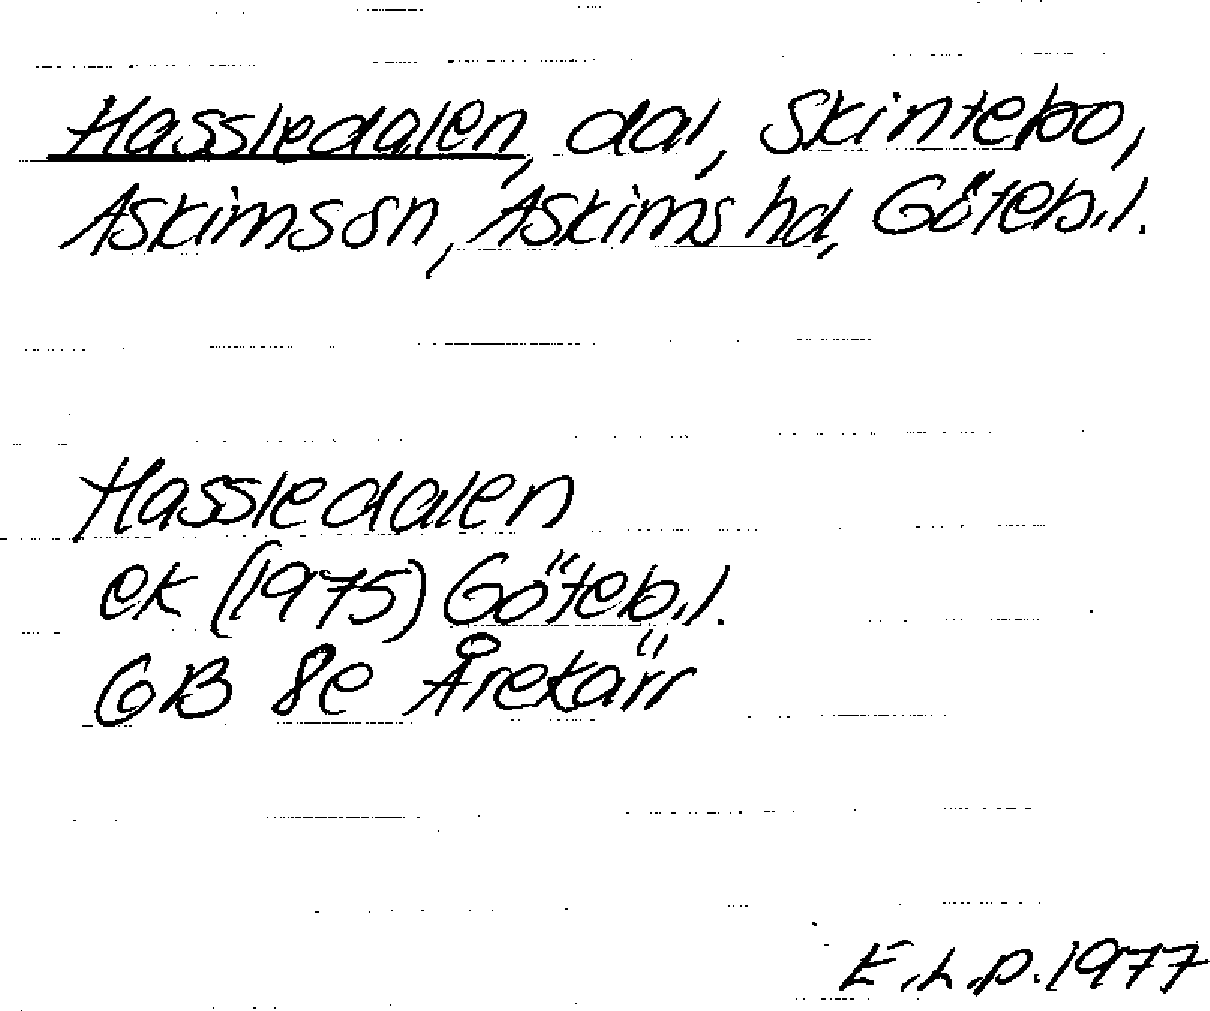 Hassledalen, dal, Skintebo,
Askims sn, Askims hd, Göteb.l.
Hassledalen
ek (1975) Göteb.l.
GB 8e Årekärr
E.L.p. 1977